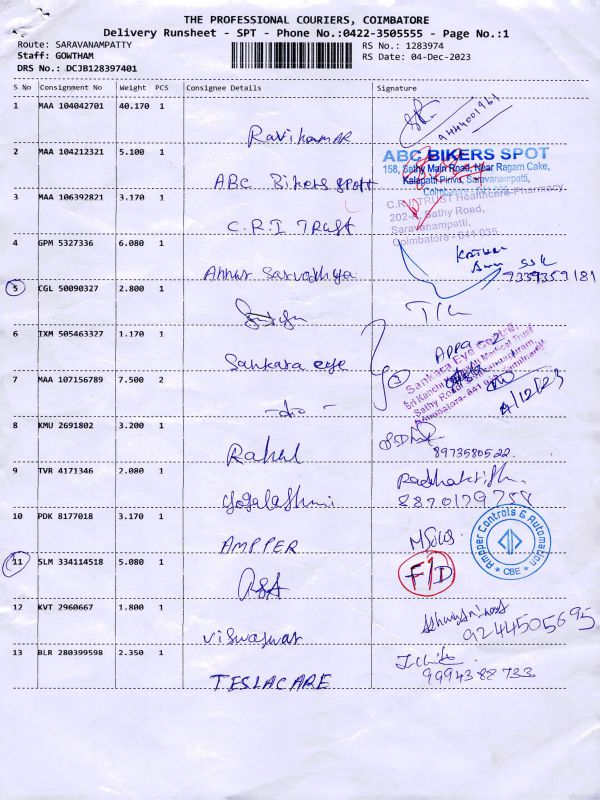 THE PROFESSIONAL COURIERS, COIMBATORE
Delivery Runsheet - SPT - Phone No.:0422-3505555 - Page No.:1
Route: SARAVANAMPATTY RS No.: 1283974
Staff: GOWTHAM RS Date: 04-Dec-2023
DRS No.: DCJB128397401
S No Consignment No Weight PCS Consignee Details Signature
1 MAA 104042701 40.170 1
Ravikumar
2 MAA 104212321 5.100 1
ABC BIKERS SPOT
158, Sathy Main Road, Near Ragam Cake,
Kalapatti Pirivu, Saravanampatti,
ABC Bikers spott
3 MAA 106392821 3.170 1
C.R.I TRUST Healthcare-Pharmacy
202-A, Sathy Road,
Saravanampatti,
Coimbatore - 641 035
C.R.I TRUST
4 GPM 5327336 6.080 1
Annur Sarvodhya
9359359181
5 CGL 50090327 2.800 1
6 TXM 505463327 1.170 1
Sankara Eye Centre,
Sankara eye
7 MAA 107156789 7.500 2
4/12/23
-do-
8 KMU 2691802 3.200 1
8973580522
Rahul
9 TVR 4171346 2.080 1
8870179758
Yogalashmi
10 PDK 8177018 3.170 1
Ampper Controls & Automation
* CBE *
AMPPER
11 SLM 334114518 5.080 1
F/D
12 KVT 2960667 1.800 1
9244505695
Viswaswar
13 BLR 280399598 2.350 1
9994388733
TESLACARE